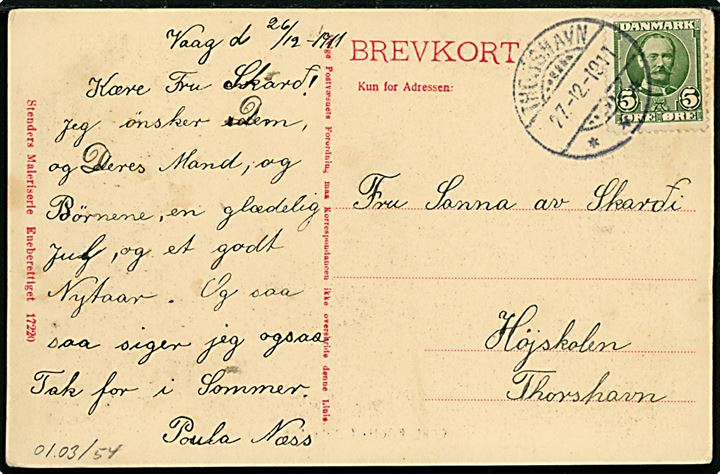 Vaag d 26/12-1911
Kære Fru Skarði!
Jeg ønsker Dem,
og Deres Mand, og
Børnene, en glædelig
Jul, og et godt
Nytaar. Og saa
saa siger jeg ogsaa
Tak for i Sommer.
Poula Næss
01.03/54
Stenders Maleriserie Eneberettiget 17220
Postvæsnets Forordning maa Korrespondancen ikke overskride denne Linie.
BREVKORT
Kun for Adressen:
THORSHAVN
27-12-1911
DANMARK
5 5
ØRE ØRE
Fru Sanna av Skarði
Højskolen
Thorshavn